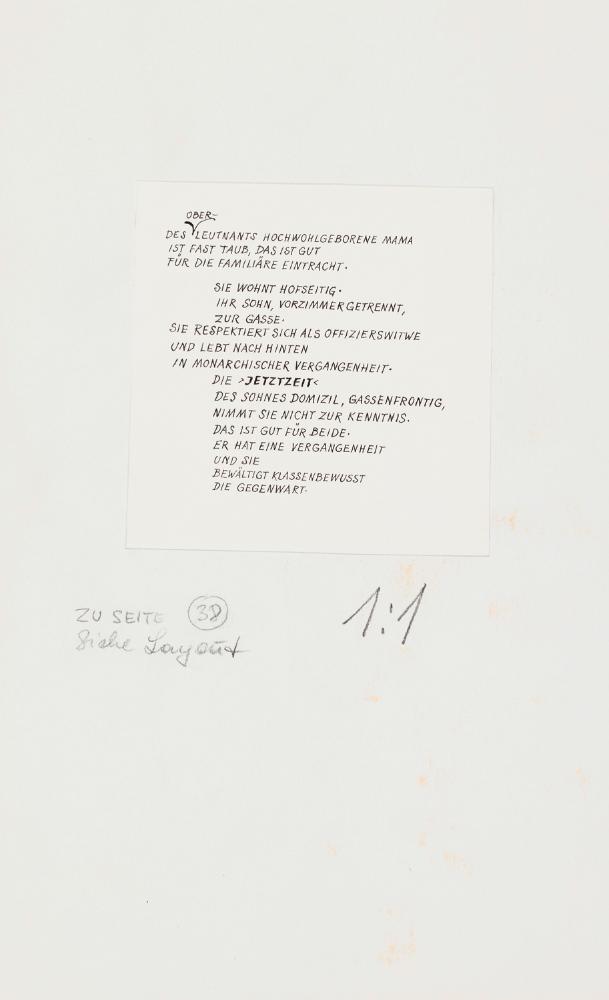 OBER-
DES LEUTNANTS HOCHWOHLGEBORENE MAMA
IST FAST TAUB, DAS IST GUT
FÜR DIE FAMILIÄRE EINTRACHT.
SIE WOHNT HOFSEITIG.
IHR SOHN, VORZIMMERGETRENNT,
ZUR GASSE.
SIE RESPEKTIERT SICH ALS OFFIZIERSWITWE
UND LEBT NACH HINTEN
IN MONARCHISCHER VERGANGENHEIT.
DIE >JETZTZEIT<
DES SOHNES DOMIZIL, GASSENFRONTIG,
NIMMT SIE NICHT ZUR KENNTNIS.
DAS IST GUT FÜR BEIDE.
ER HAT EINE VERGANGENHEIT
UND SIE
BEWÄLTIGT KLASSENBEWUSST
DIE GEGENWART.
ZU SEITE 38
Siehe Layout
1:1